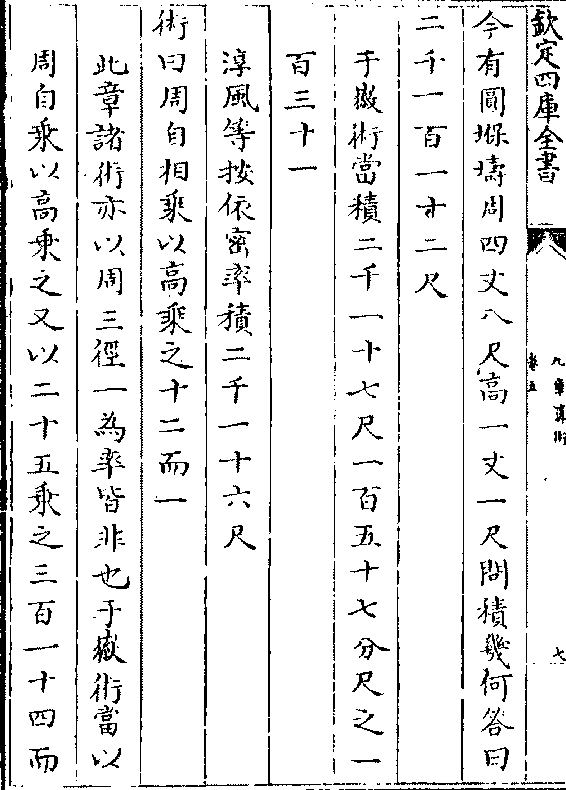 欽定四庫全書
九章算術
卷五
七
今有圓堢壔周四丈八尺高一丈一尺問積幾何答曰
二千一百一十二尺
于徽術當積二千一十七尺一百五十七分尺之一
百三十一
淳風等按依密率積二千一十六尺
術曰周自相乘以高乘之十二而一
此章諸術亦以周三徑一為率皆非也于徽術當以
周自乘以高乘之又以二十五乘之三百一十四而